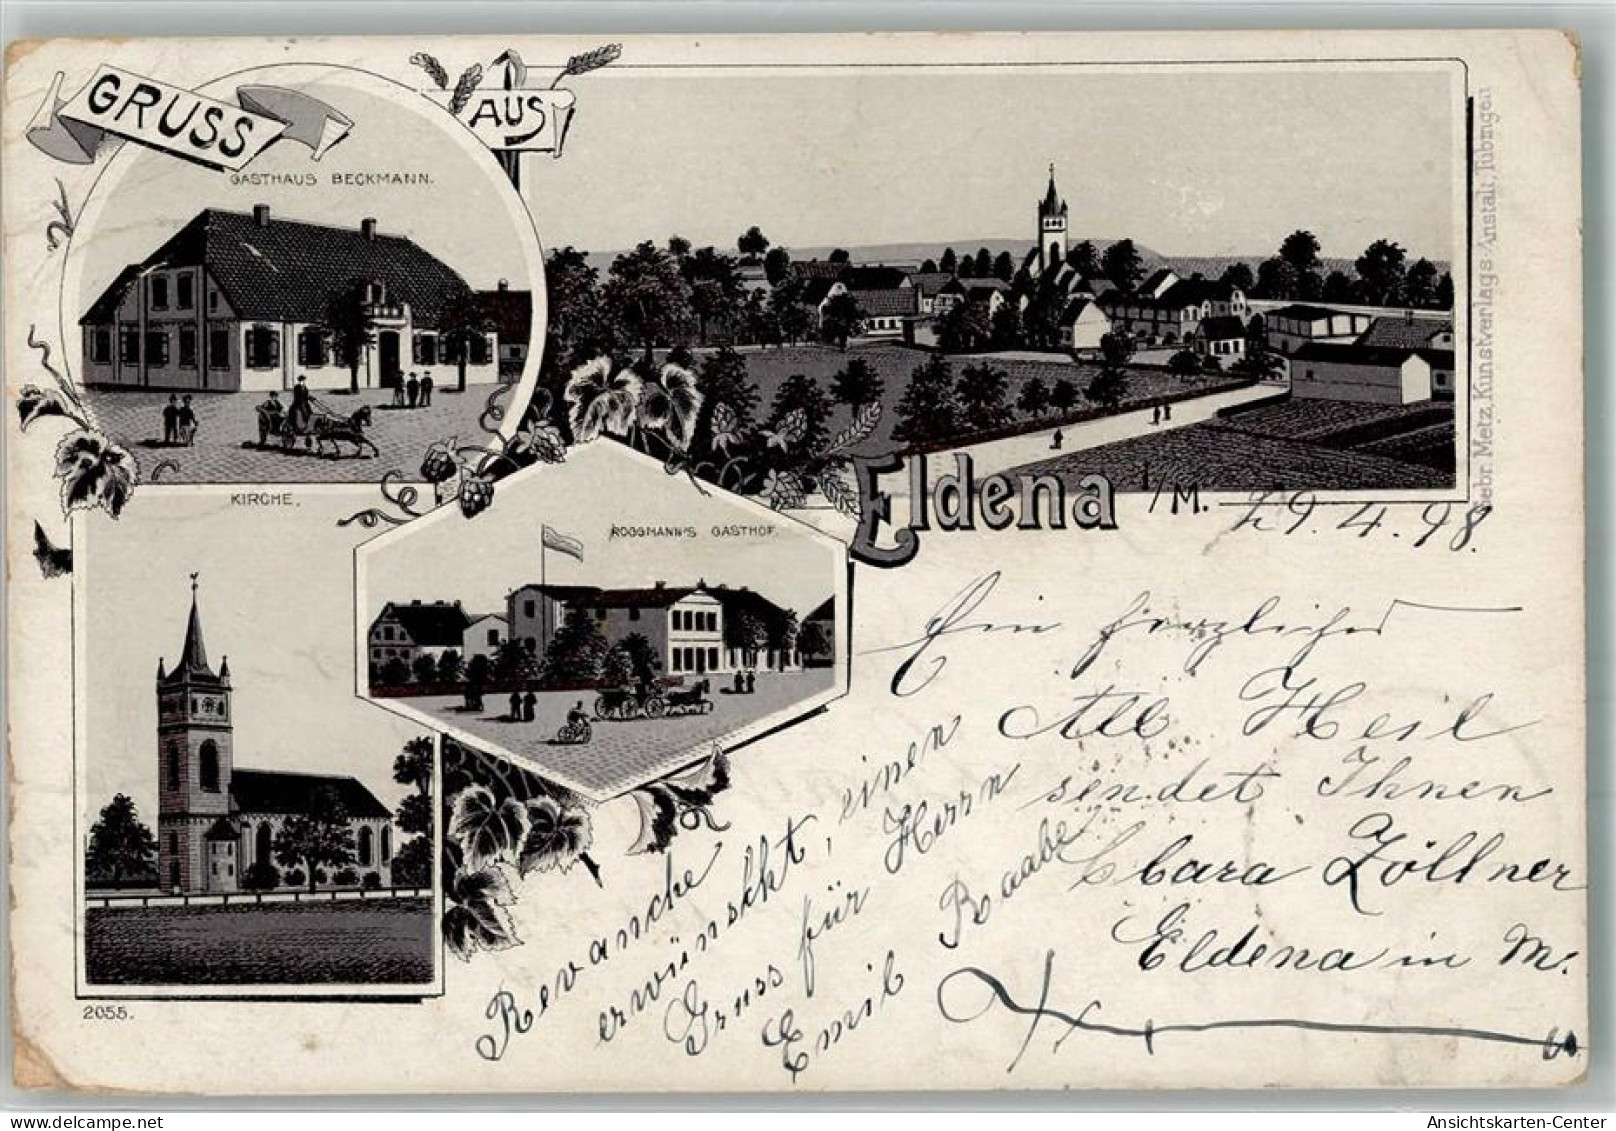 GRUSS
AUS
GASTHAUS BECKMANN.
KIRCHE.
ROGGMANN'S GASTHOF.
Eldena i/M.
29.4.98.
Ein herzliches
All Heil
sendet Ihnen
Clara Zöllner
Eldena in M.
Revanche
erwünscht, einen
Gruss für Herrn
Emil Raabe
2055.
Gebr. Metz, Kunstverlags-Anstalt, Tübingen
Ansichtskarten-Center